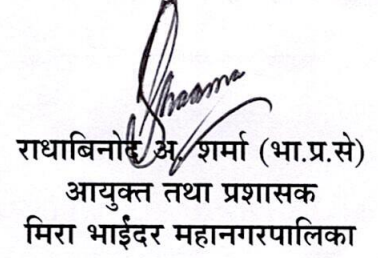 Sharma
राधाबिनोद अ. शर्मा (भा.प्र.से)
आयुक्त तथा प्रशासक
मिरा भाईंदर महानगरपालिका